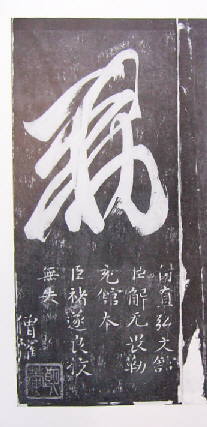 付直弘文館
臣解无畏勒
充館本
臣褚遂良校
無失
僧權